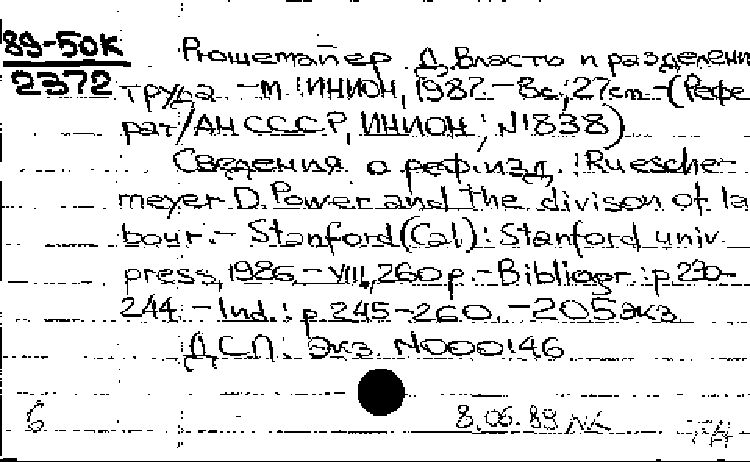 89-50К
2372
Рюшемайер Д. Власть и разделени
труда. - М.: ИНИОН, 1987. - 8с.; 27см - (Рефе
рат/АН СССР, ИНИОН; N1838)
Сведения о реф. изд.: Ruesche-
meyer D. Power and the divison of la
bour. - Stanford (Cal): Stanford univ.
press, 1986. - VIII, 260 p. - Bibliogr.: p 230-
244. - Ind.: p. 245-260. - 205 экз.
ДСП: Экз. N000146
6
8.06.89